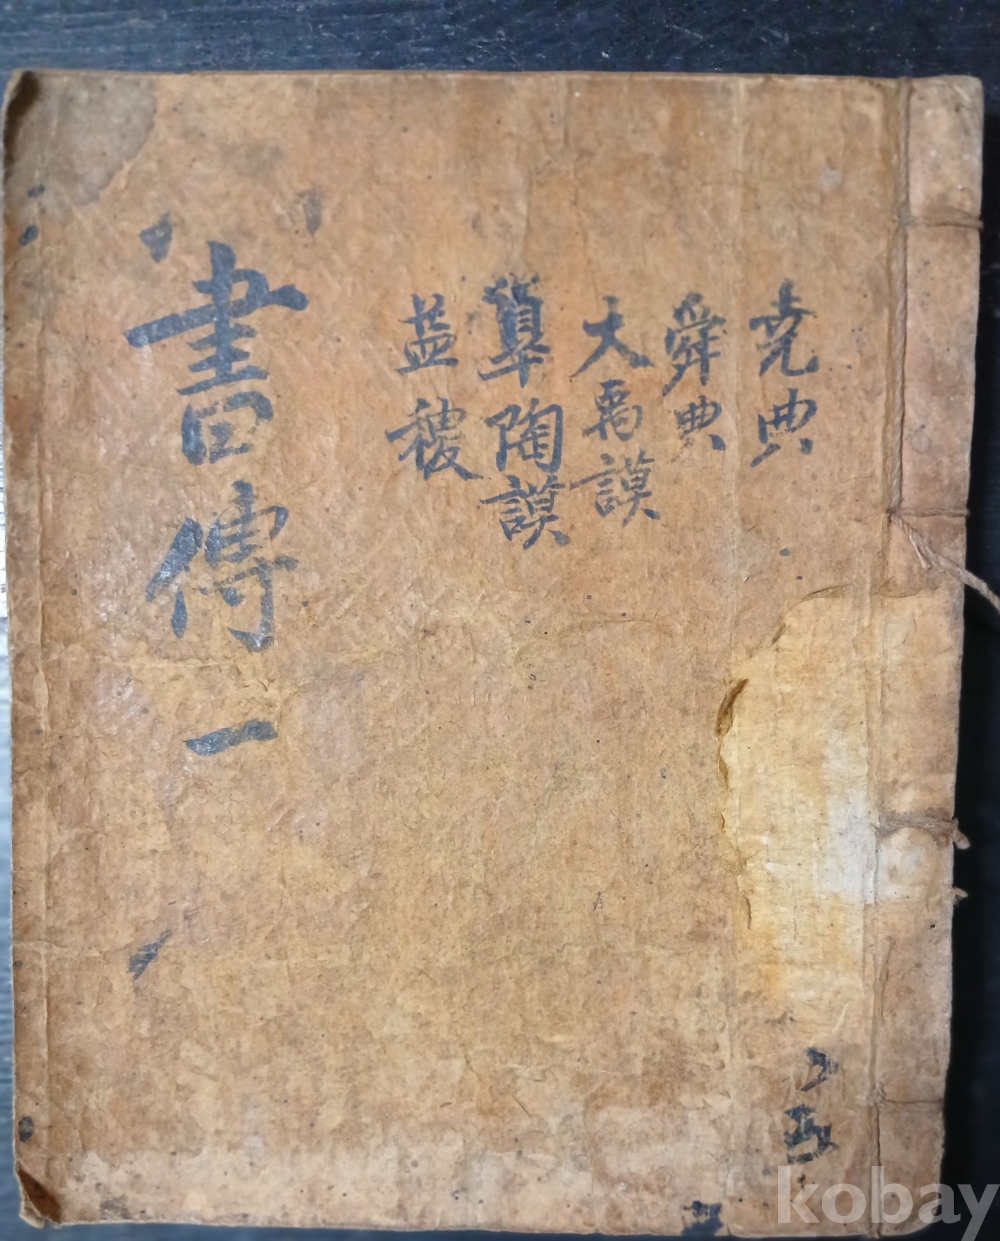 堯典
舜典
大禹謨
皐陶謨
益稷
書傳一
kobay